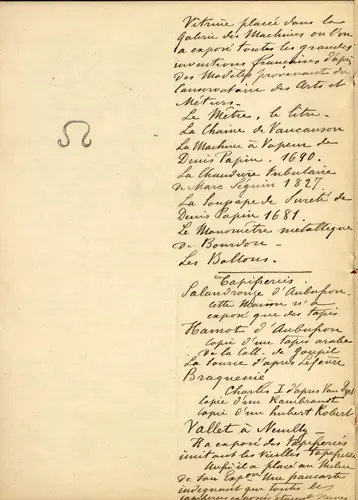 Vitrine placée dans la
Galerie des Machines où l'on
a exposé toutes les grandes
inventions françaises d'après
des Modèles provenant du
Conservatoire des Arts et
Métiers.
Le Mètre, le litre.
La Chaine de Vaucanson
La Machine à Vapeur de
Denis Papin. 1690.
La Chaudière Tubulaire
de Marc Séguin 1827.
La Soupape de Sureté de
Denis Papin 1681.
Le Manomètre métallique
de Bourdon.
Les Ballons.
Tapisseries.
Salandrouze d'Aubusson.
cette Maison n'a
exposé que des tapis
Hamot d'Aubusson
copie d'un tapis arabe
de la Coll. de Goupil
La source d'après Lefèvre
Braquenié
Charles I d'après Van Dyck
copie d'un Rembrandt
copie d'un hubert Robert
Vallet à Neuilly
Ha exposé des tapisseries
imitant les vieilles tapisseries
Aussi il a placé au
de son Expon Une pancarte
indiquant que toutes les